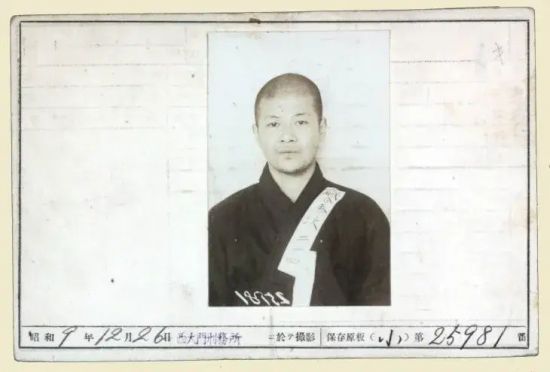 昭和 9 年 12 月 26 日 西大門刑務所 ニ於テ撮影 保存原板 (小) 第 25981 番